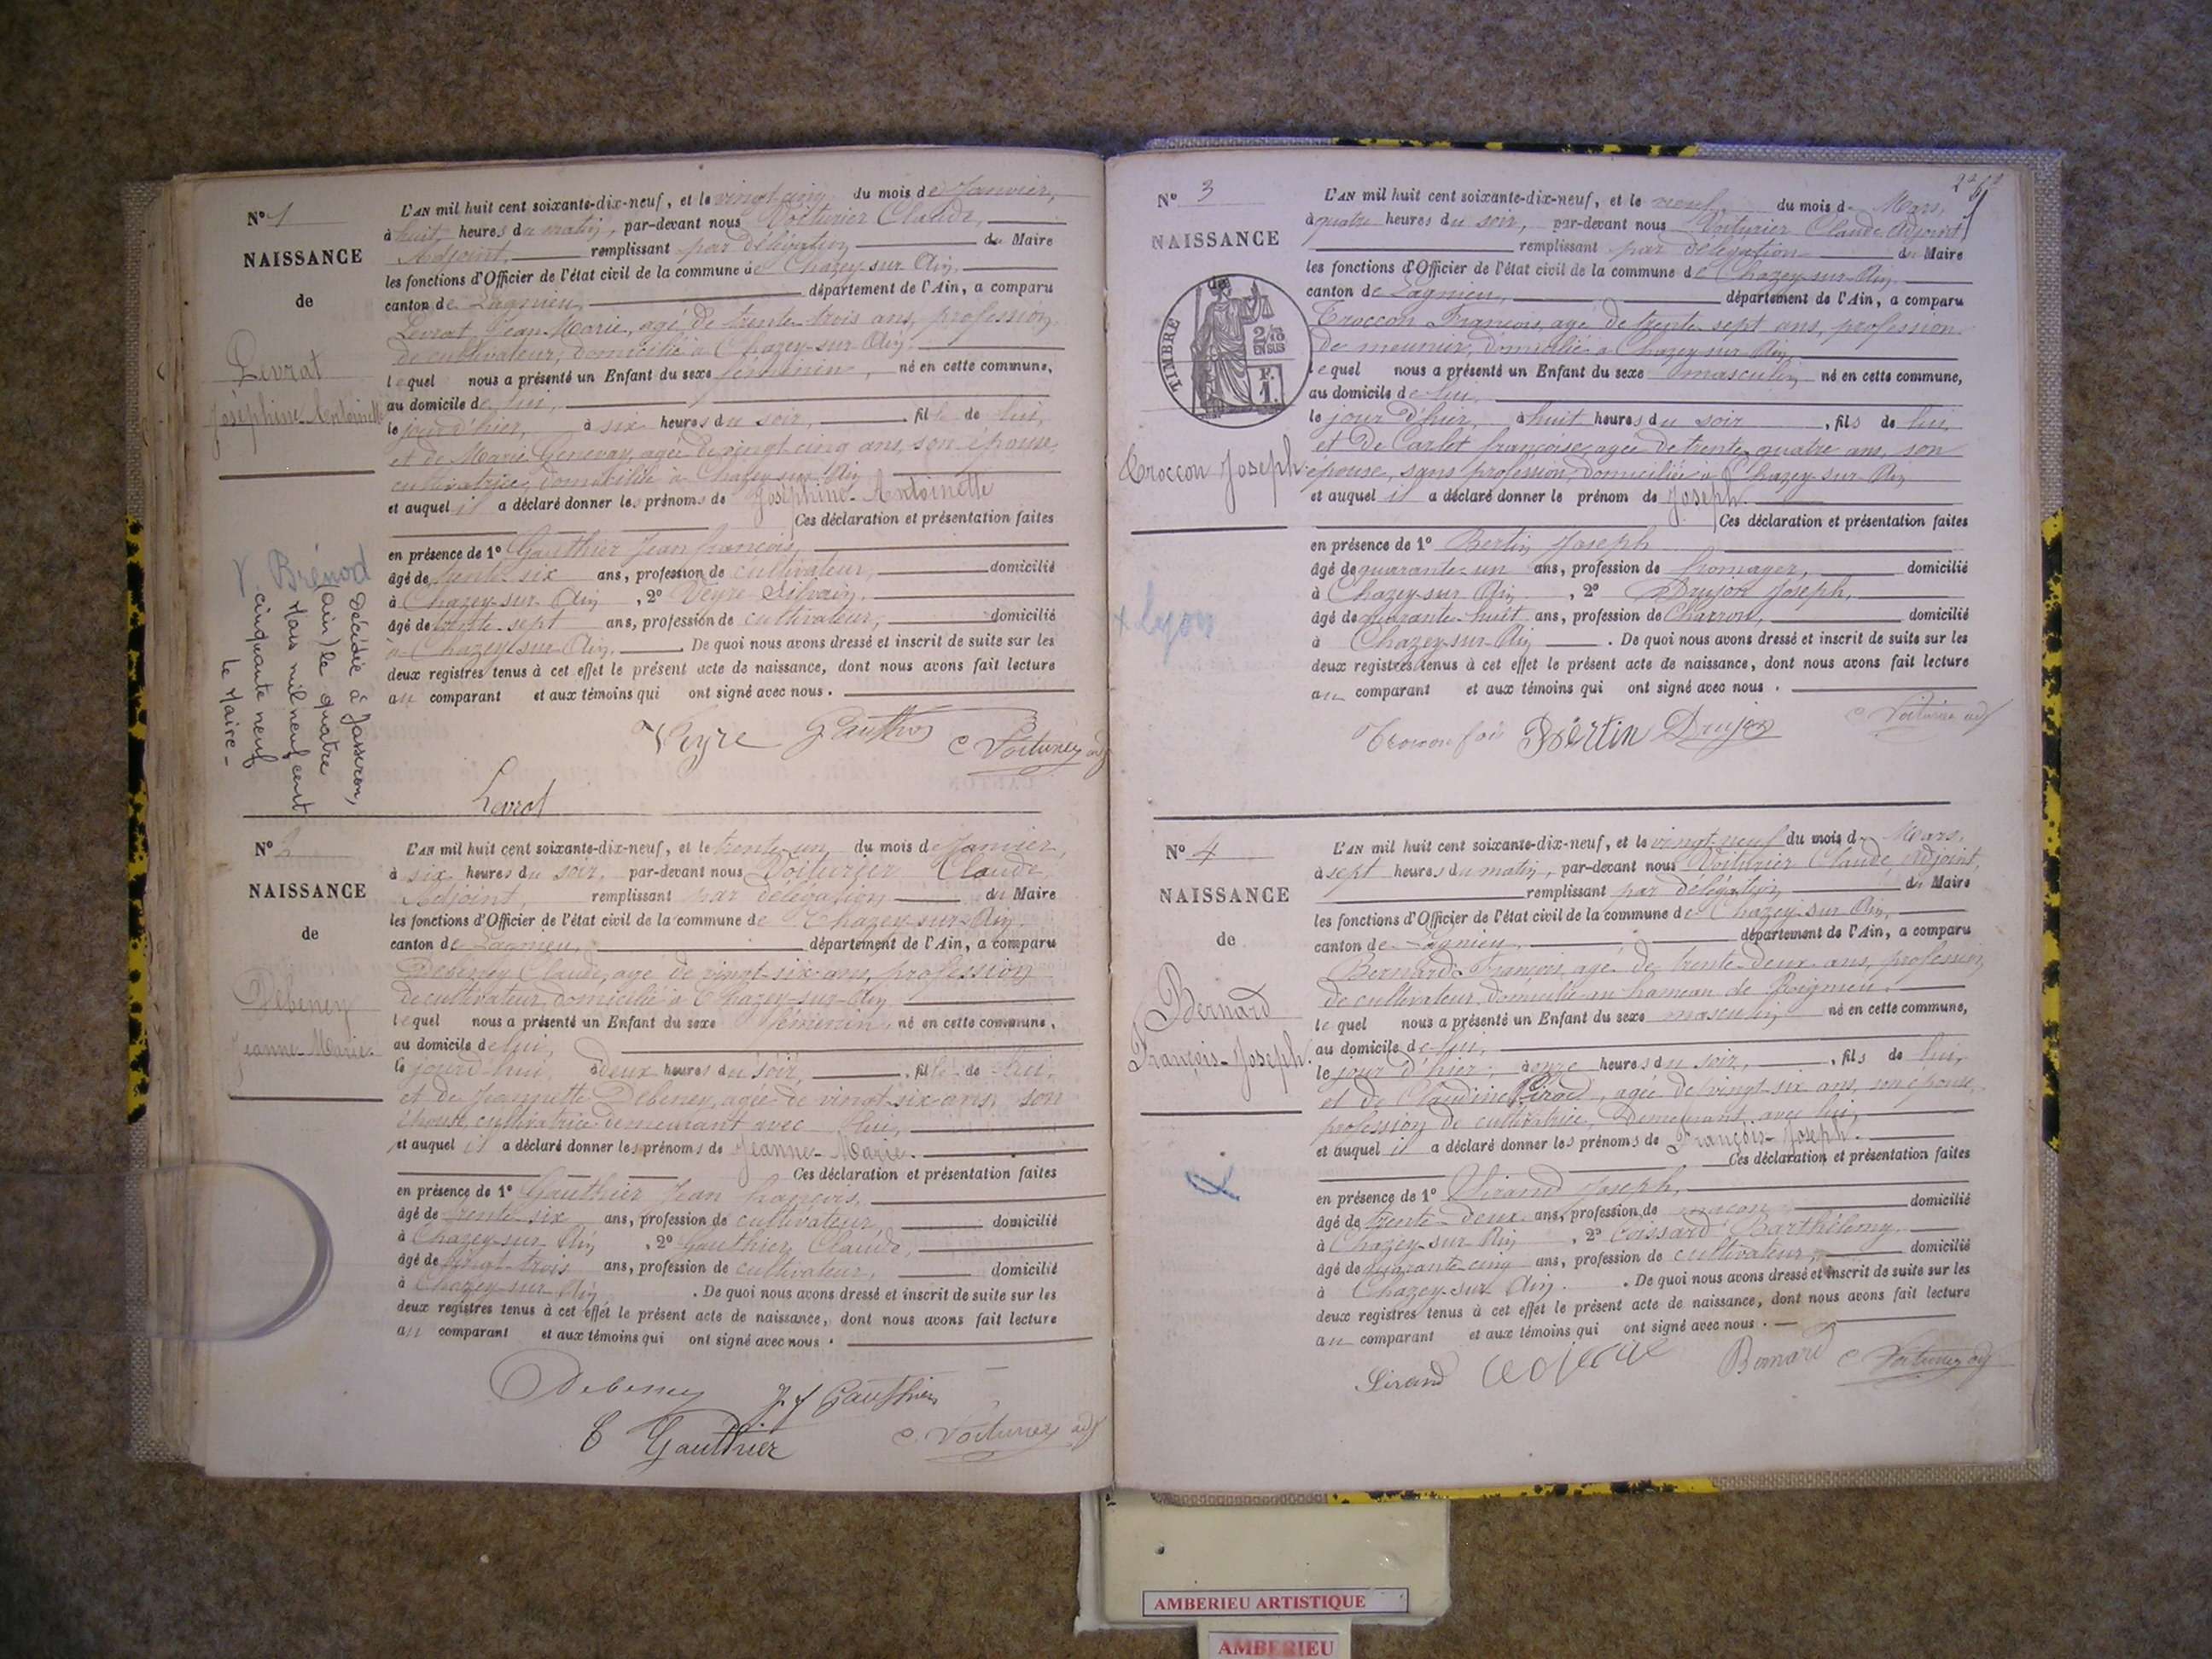 N° 1
NAISSANCE
de
Levrat
Joséphine Antoinette
Brénod
Décédée à Jasseron,
(ain) le quatre
Mars mil neuf cent
cinquante neuf
le Maire -
L'AN mil huit cent soixante-dix-neuf, et le vingt cinq du mois de Janvier,
à huit heures du matin, par-devant nous Voiturier Claude,
Adjoint, remplissant par délégation du Maire
les fonctions d'Officier de l'état civil de la commune de Chazey-sur-Ain,
canton de Lagnieu, département de l'Ain, a comparu
Levrat Jean-Marie, agé de trente-trois ans, profession
de cultivateur, domicilié à Chazey-sur-Ain.
lequel nous a présenté un Enfant du sexe féminin, né en cette commune,
au domicile de lui,
le jour d'hier, à six heures du soir, fille de lui,
et de Marie Genevay, agée de vingt cinq ans, son épouse,
cultivatrice, domiciliée à Chazey-sur-Ain
et auquel il a déclaré donner les prénoms de Joséphine-Antoinette
Ces déclaration et présentation faites
en présence de 1° Gauthier Jean françois,
âgé de trente six ans, profession de cultivateur, domicilié
à Chazey-sur-Ain, 2° Veyre
âgé de sept ans, profession de cultivateur, domicilié
à Chazey-sur-Ain. De quoi nous avons dressé et inscrit de suite sur les
deux registres tenus à cet effet le présent acte de naissance, dont nous avons fait lecture
au comparant et aux témoins qui ont signé avec nous.
Veyre Gauthier C Voiturier adj
Levrat
N° 2
NAISSANCE
de
Debeney
Jeanne-Marie
L'AN mil huit cent soixante-dix-neuf, et le trente-un du mois de Janvier,
à six heures du soir, par-devant nous Voiturier Claude
Adjoint, remplissant par délégation du Maire
les fonctions d'Officier de l'état civil de la commune de Chazey-sur-Ain
canton de Lagnieu, département de l'Ain, a comparu
Debeney Claude, agé de vingt-six ans, profession
de cultivateur, domicilié à Chazey-sur-Ain
lequel nous a présenté un Enfant du sexe féminin, né en cette commune,
au domicile de lui,
le jourd'hui, à deux heures du soir, fille de lui,
et de Jeannette Debeney, agée de vingt-six ans, son
épouse, cultivatrice demeurant avec lui,
et auquel il a déclaré donner les prénoms de Jeanne-Marie.
Ces déclaration et présentation faites
en présence de 1° Gauthier Jean françois,
âgé de trente-six ans, profession de cultivateur, domicilié
à Chazey-sur-Ain, 2° Gauthier Claude,
âgé de vingt-trois ans, profession de cultivateur, domicilié
à Chazey-sur-Ain. De quoi nous avons dressé et inscrit de suite sur les
deux registres tenus à cet effet le présent acte de naissance, dont nous avons fait lecture
au comparant et aux témoins qui ont signé avec nous.
Debeney J. f Gauthier
C Gauthier C. Voiturier adj
N° 3
NAISSANCE
TIMBRE
2/10
EN SUS
F.
1.
Croccon Joseph
x Lyon
L'AN mil huit cent soixante-dix-neuf, et le neuf du mois de Mars,
à quatre heures du soir, par-devant nous Voiturier Claude Adjoint
remplissant par délégation du Maire
les fonctions d'Officier de l'état civil de la commune de Chazey-sur-Ain,
canton de Lagnieu, département de l'Ain, a comparu
Croccon François, agé de trente sept ans, profession
de meunier, domicilié à Chazey-sur-Ain,
lequel nous a présenté un Enfant du sexe masculin né en cette commune,
au domicile de lui,
le jour d'hier, à huit heures du soir, fils de lui,
et de Carlet françoise, agée de trente quatre ans, son
épouse, sans profession, domiciliée à Chazey-sur-Ain
et auquel il a déclaré donner le prénom de Joseph.
Ces déclaration et présentation faites
en présence de 1° Bertin Joseph
âgé de quarante-un ans, profession de fromager, domicilié
à Chazey-sur-Ain, 2° Drujon Joseph,
âgé de quarante-huit ans, profession de Charron, domicilié
à Chazey-sur-Ain. De quoi nous avons dressé et inscrit de suite sur les
deux registres tenus à cet effet le présent acte de naissance, dont nous avons fait lecture
au comparant et aux témoins qui ont signé avec nous.
Bertin Drujon C Voiturier adj
N° 4
NAISSANCE
de
Bernard
François-Joseph.
L'AN mil huit cent soixante-dix-neuf, et le vingt-neuf du mois de Mars,
à sept heures du matin, par-devant nous Voiturier Claude, Adjoint,
remplissant par délégation du Maire
les fonctions d'Officier de l'état civil de la commune de Chazey-sur-Ain,
canton de Lagnieu, département de l'Ain, a comparu
Bernard François, agé de trente-deux ans, profession
de cultivateur, domicilié au hameau de Rignieu.
lequel nous a présenté un Enfant du sexe masculin né en cette commune,
au domicile de lui,
le jour d'hier, à onze heures du soir, fils de lui,
et de Claudine, agée de vingt-six ans, son épouse,
profession de cultivatrice, Demeurant avec lui,
et auquel il a déclaré donner les prénoms de François-Joseph.
Ces déclaration et présentation faites
en présence de 1° Sirand Joseph,
âgé de trente-deux ans, profession de maçon domicilié
à Chazey-sur-Ain, 2° Coissard Barthélemy.
âgé de quarante-cinq ans, profession de cultivateur, domicilié
à Chazey-sur-Ain. De quoi nous avons dressé et inscrit de suite sur les
deux registres tenus à cet effet le présent acte de naissance, dont nous avons fait lecture
au comparant et aux témoins qui ont signé avec nous.
Sirand Bernard C Voiturier adj
AMBERIEU ARTISTIQUE
AMBERIEU